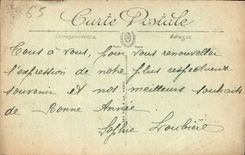 65
Carte Postale
Correspondance
Adresse
Tous à vous, pour vous renouveller
l'expression de notre plus respectueux
souvenir et nos meilleurs souhaits
de Bonne Année.
Sophie Loubière